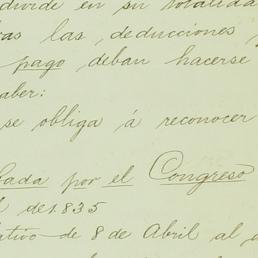 divide en su totalidad
las, deducciones,
pago deban hacerse
saber:
se obliga á reconocer
por el Congreso
de 1.835
de 8 de Abril al